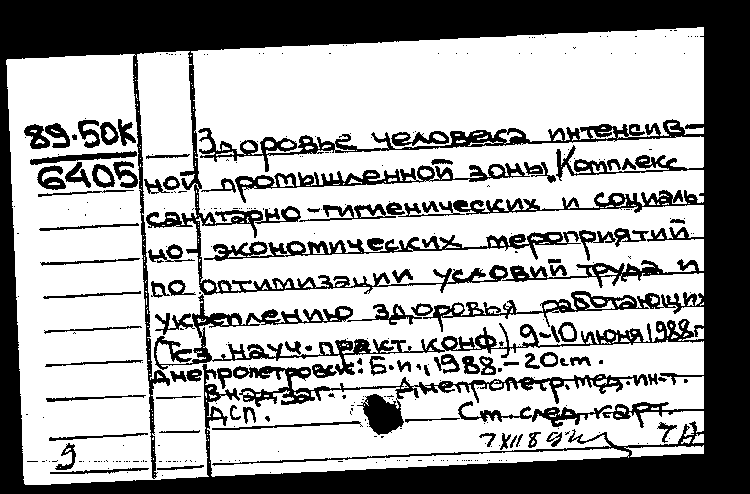 89.50К
6405
Здоровье человека интенсив-
ной промышленной зоны. Комплекс
санитарно-гигиенических и социаль-
но-экономических мероприятий
по оптимизации условий труда и
укреплению здоровья работающих
(Тез. науч.-практ. конф.), 9-10 июня 1988г
Днепропетровск: Б.и., 1988.-20см.
В надзаг.: Днепропетр. мед. ин-т.
ДСП. См. след. карт.
9